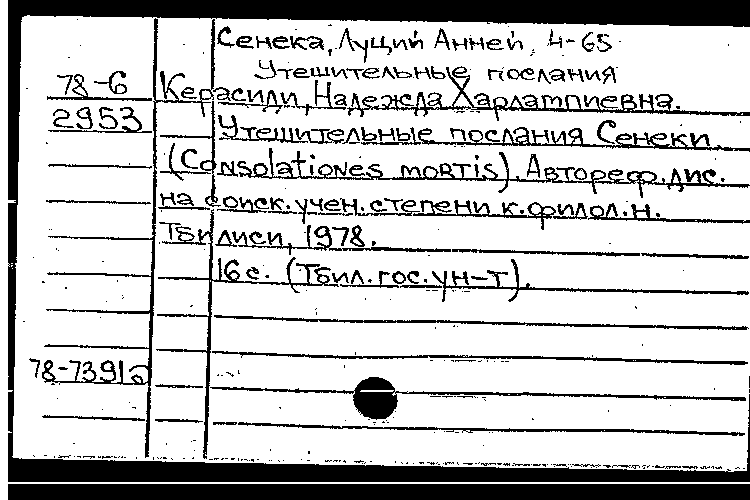 Сенека, Луций Анней, 4-65
Утешительные послания
78-6 Керасиди, Надежда Харлампиевна.
2953 Утешительные послания Сенеки.
(Consolationes mortis). Автореф.дис.
на соиск.учен.степени к.филол.н.
Тбилиси, 1978.
16с. (Тбил.гос.ун-т).
78-7391б